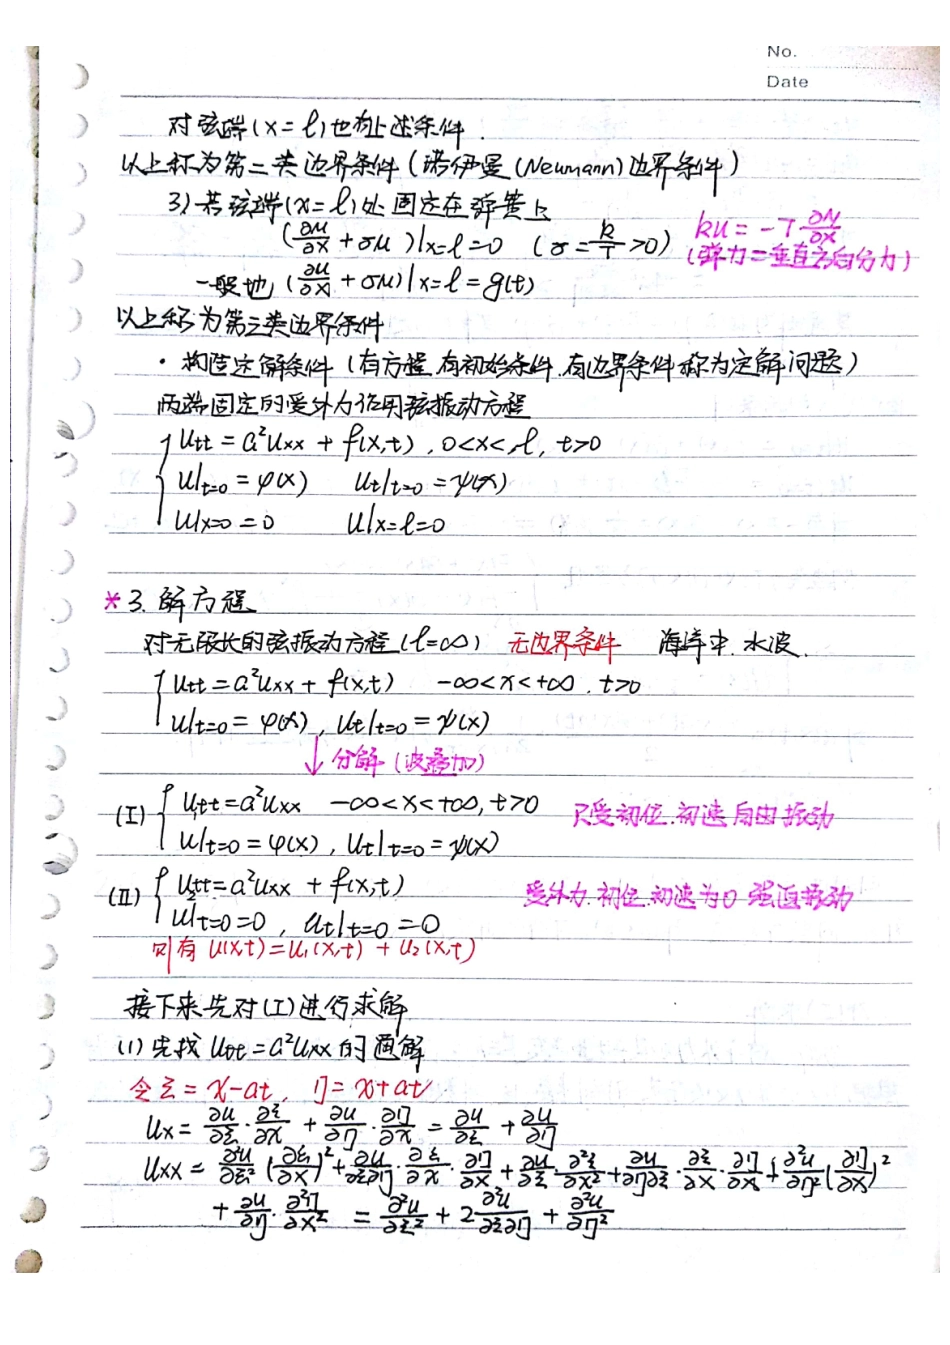 No.
Date
对弦端(x=l)也有上述条件.
以上称为第二类边界条件(诺伊曼(Neumann)边界条件)
3)若弦端(x=l)处固定在弹簧上
(∂u/∂x + σu)|x=l = 0 (σ = k/T >0) ku = -T ∂u/∂x
(弹力=垂直方向分力)
一般地 (∂u/∂x + σu)|x=l = g(t)
以上称为第三类边界条件
· 构造定解条件(有方程,有初始条件,有边界条件称为定解问题)
两端固定的受外力作用弦振动方程
{ utt = a²uxx + f(x,t), 0<x<l, t>0
u|t=0 = φ(x) ut|t=0 = ψ(x)
u|x=0 = 0 u|x=l=0
* 3. 解方程
对无限长的弦振动方程(l=∞) 无边界条件 海洋中.水波.
{ utt = a²uxx + f(x,t) -∞<x<+∞, t>0
u|t=0 = φ(x), ut|t=0 = ψ(x)
↓ 分解(波叠加)
(I) { utt=a²uxx -∞<x<+∞, t>0 只受初位.初速 自由振动
u|t=0 = φ(x), ut|t=0 = ψ(x)
(II) { utt=a²uxx + f(x,t) 受外力.初位.初速为0 强迫振动
u|t=0=0, ut|t=0 = 0
则有 u(x,t)=u₁(x,t) + u₂(x,t)
接下来先对(I)进行求解
(1) 先找 utt=a²uxx 的通解
令ξ = x-at, η = x+at
ux = ∂u/∂ξ · ∂ξ/∂x + ∂u/∂η · ∂η/∂x = ∂u/∂ξ + ∂u/∂η
uxx = ∂²u/∂ξ² (∂ξ/∂x)² + ∂²u/∂ξ∂η · ∂ξ/∂x · ∂η/∂x + ∂u/∂ξ · ∂²ξ/∂x² + ∂²u/∂η∂ξ · ∂ξ/∂x · ∂η/∂x + ∂²u/∂η² (∂η/∂x)²
+ ∂u/∂η · ∂²η/∂x² = ∂²u/∂ξ² + 2 ∂²u/∂ξ∂η + ∂²u/∂η²